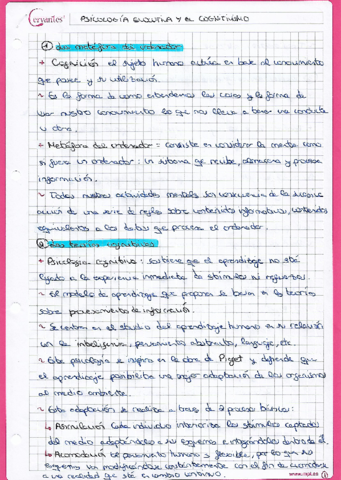 Cervantes®
PSICOLOGÍA EVOLUTIVA Y EL COGNITIVISMO
1 La metáfora del ordenador
Cognición: el sujeto humano actúa en base al conocimiento
que posee y su utilización.
~ Es la forma de como entendemos las cosas y la forma de
usar nuestro conocimiento lo que nos lleva a tener una conducta
u otra.
Metáfora del ordenador = consiste en considerar la mente como
si fuera un ordenador: un sistema que recibe, almacena y procesa
información.
~ Todas nuestras actividades mentales son consecuencia de la
de una serie de reglas sobre contenidos informativos, contenidos
equivalentes a los datos que procesa el ordenador.
2 Las teorías cognitivas
Psicología cognitiva: sostiene que el aprendizaje no está
ligado a la experiencia inmediata de estímulos ni
~ El modelo de aprendizaje que propone se basa en la teoría
sobre procesamiento de información.
~ Se centra en el estudio del aprendizaje humano en su relación
con la inteligencia, pensamiento abstracto, lenguaje, etc.
~ Esta psicología se inspira en la obra de Piaget y defiende que
el aprendizaje posibilita una mejor adaptación de los organismos
al medio ambiente.
~ Esta adaptación se realiza a base de 2 procesos básicos:
Asimilación: cada individuo interioriza los estímulos captados
del medio adaptándolos a su esquema e integrándolos dentro de él.
Acomodación: el pensamiento humano es flexible, por lo que su
esquema va modificándose constantemente con el fin de
a una realidad que está en cambio continuo